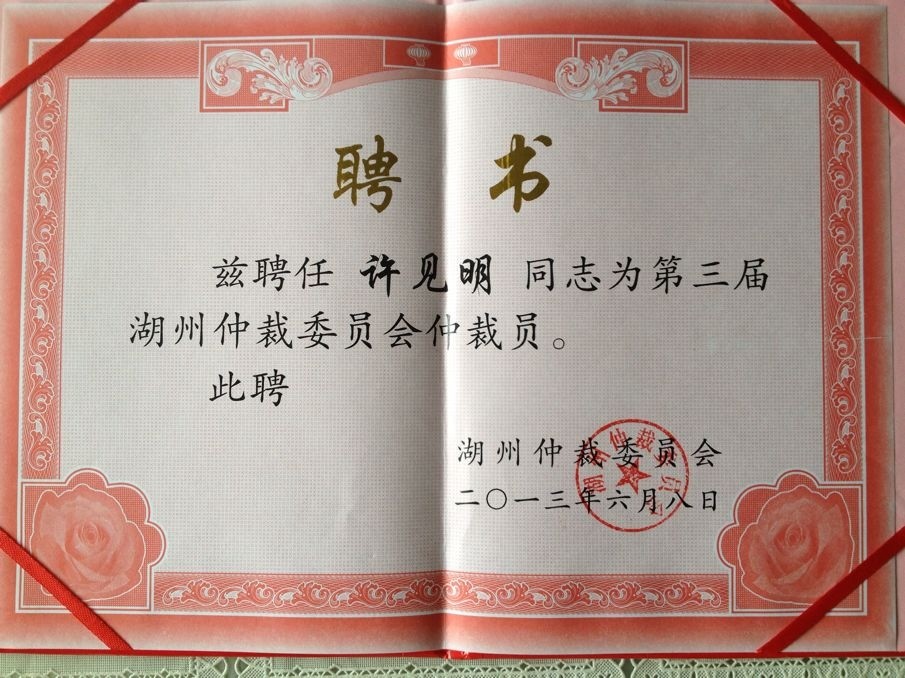 聘 书
兹聘任 许见明 同志为第三届
湖州仲裁委员会仲裁员。
此聘
湖州仲裁委员会
二〇一三年六月八日
湖州仲裁委员会